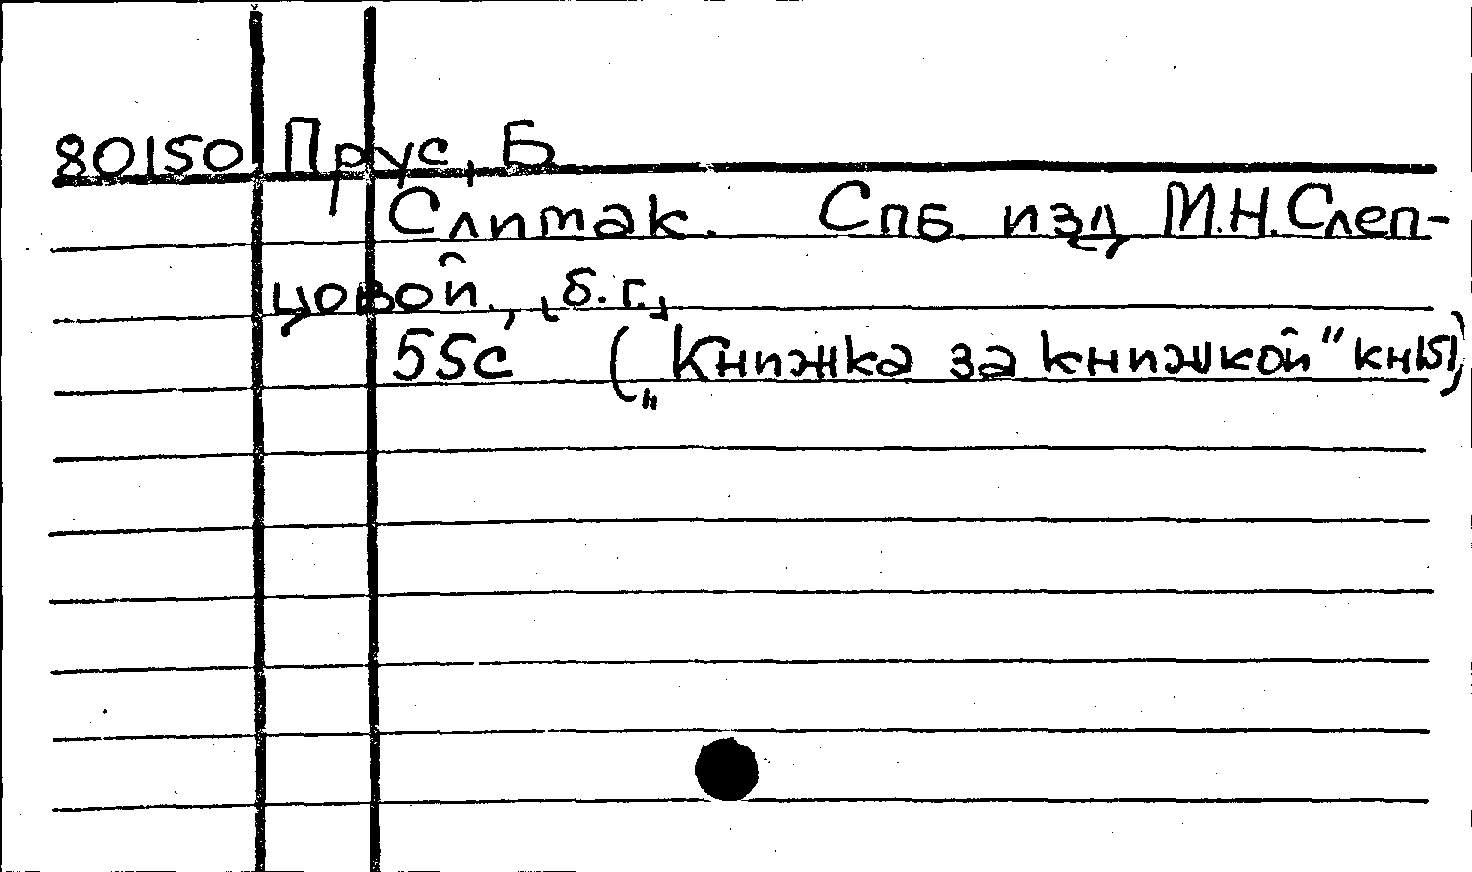 80150 Прус, Б.
Слимак. Спб. изд. М.Н.Слеп-
цовой., [б.г.]
55с („Книжка за книжкой" кн151)